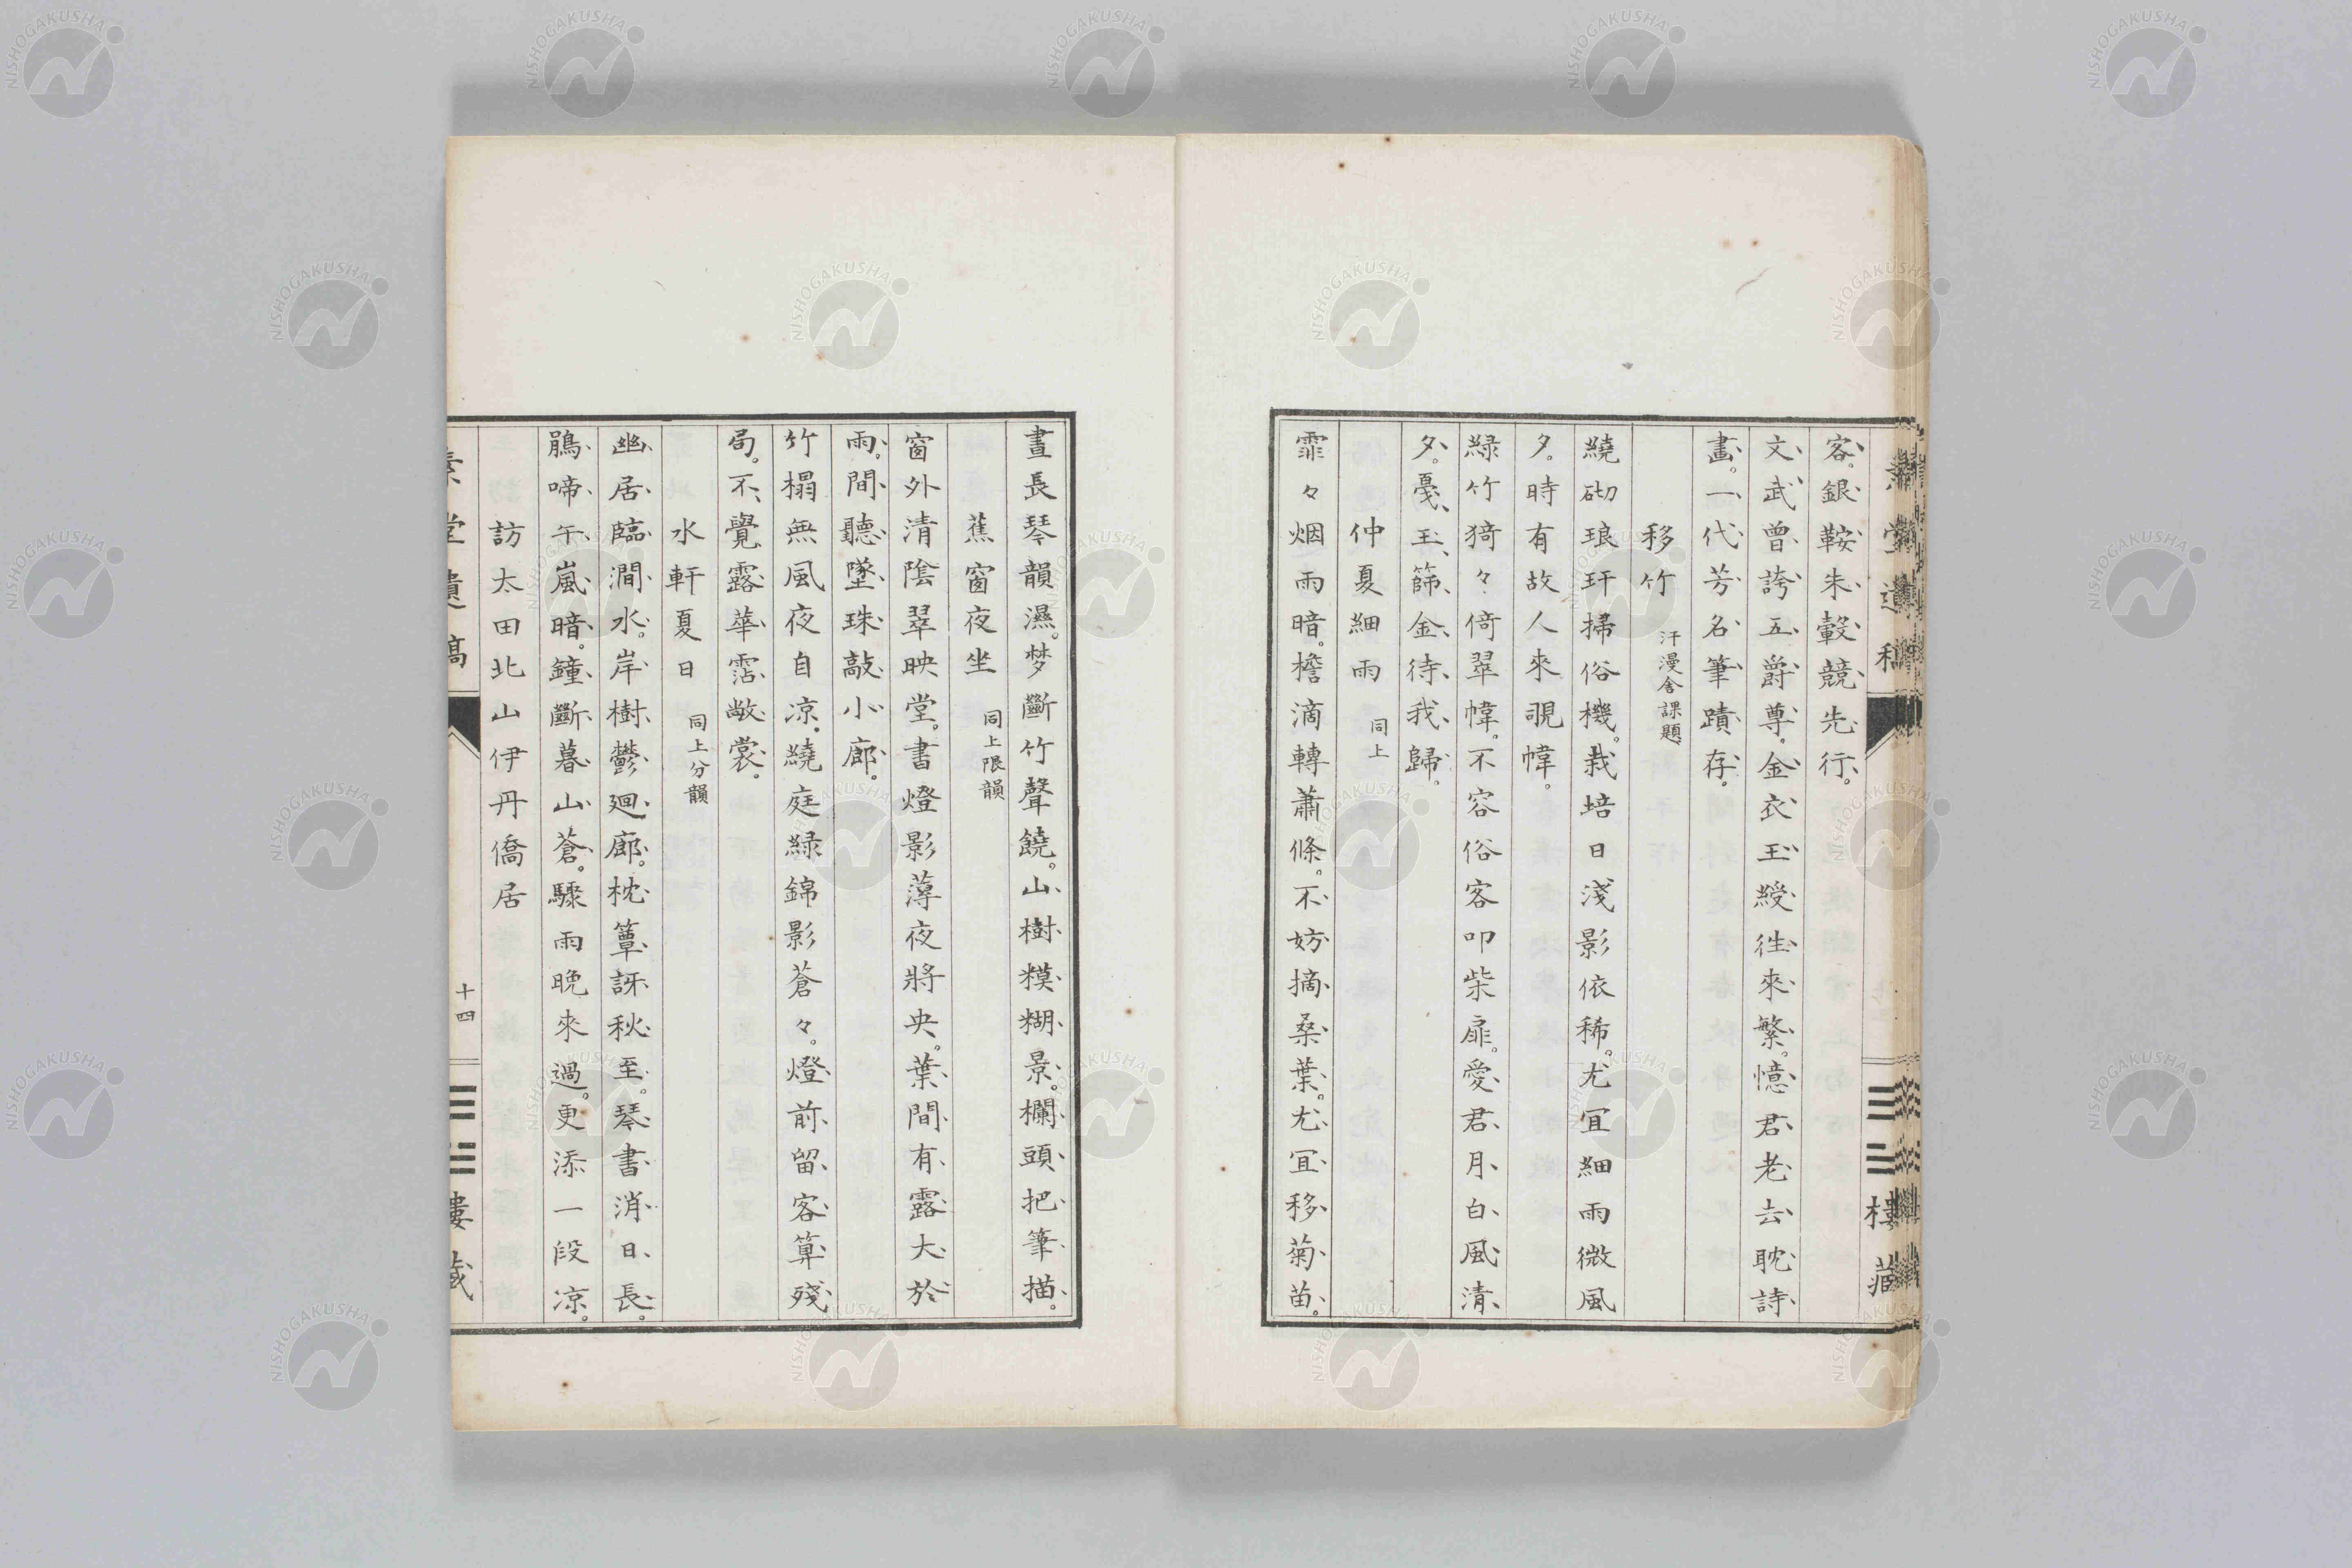 客。銀鞍朱轂競先行。
文武曾誇五爵尊。金衣玉綬徃來繁。憶君老去耽詩
畫。一代芳名筆蹟存。
移竹 汗漫舍課題
繞砌琅玕掃俗機。栽培日淺影依稀。尤宜細雨微風
夕。時有故人來覗幃。
緑竹猗々倚翠幃。不容俗客叩柴扉。愛君月白風清
夕。戞玉篩金待我歸。
仲夏細雨 同上
霏々烟雨暗。檐滴轉蕭條。不妨摘桑葉。尤宜移菊苗。
晝長琴韻濕。梦斷竹聲饒。山樹糢糊景。欄頭把筆描。
蕉窗夜坐 同上限韻
窗外清陰翠映堂。書燈影薄夜將央。葉間有露大於
雨。間聽墜珠敲小廊。
竹榻無風夜自凉。繞庭緑錦影蒼々。燈前留客算殘
局。不覺露華霑敞裳。
水軒夏日 同上分韻
幽居臨澗水。岸樹鬱廻廊。枕簟訝秋至。琴書消日長。
鵑啼午嵐暗。鐘斷暮山蒼。驟雨晩來過。更添一段凉。
訪太田北山伊丹僑居
素堂遺稿 十四 ☲☱樓藏